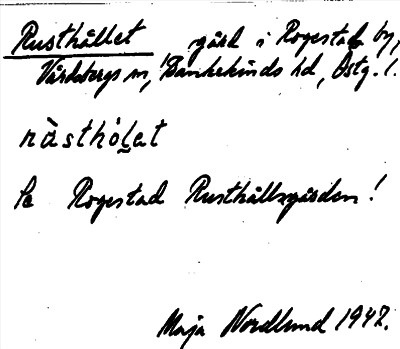 Rusthållet gård i Rogestad by,
Vårdsbergs sn, Bankekinds hd, Östg. l.
ràsthólat
Se Rogestad Rusthållsgården!
Maja Nordlund 1942.